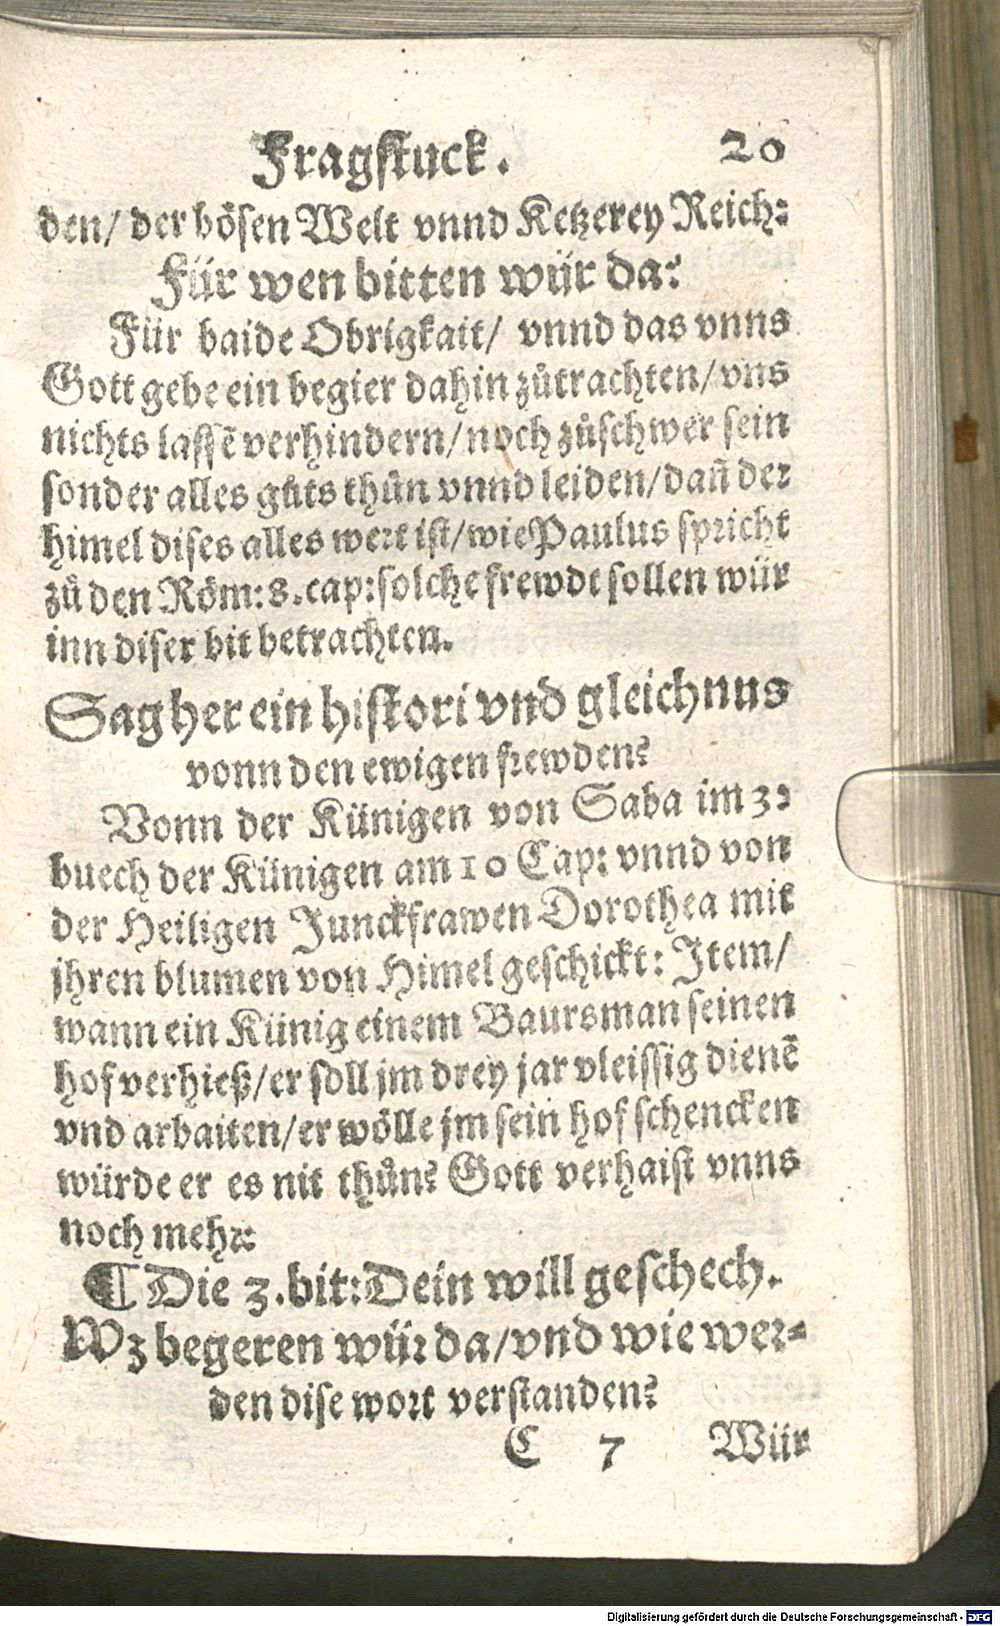 Fragstuck. 20
den/ der bösen Welt vnnd Ketzerey Reich:
Für wen bitten wür da?
Für baide Obrigkait/ vnnd das vnns
Gott gebe ein begier dahin zůtrachten/ vns
nichts lassē verhindern/ noch zůschwer sein
sonder alles gůts thůn vnnd leiden/ dañ der
himel dises alles wert ist/ wie Paulus spricht
zů den Röm: 8. cap: solche frewde sollen wür
inn diser bit betrachten.
Sag her ein histori vnd gleichnus
vonn den ewigen frewden?
Vonn der Künigen von Saba im 3:
buech der Künigen am 10 Cap: vnnd von
der Heiligen Junckfrawen Dorothea mit
jhren blumen von Himel geschickt: Item/
wann ein Künig einem Baursman seinen
hof verhieß/ er soll jm drey jar vleissig dienē
vnd arbaiten/ er wölle jm sein hof schencken
würde er es nit thůn? Gott verhaist vnns
noch mehr:
¶ Die 3. bit: Dein will geschech.
Wz begeren wür da/ vnd wie wer-
den dise wort verstanden?
C 7 Wür
Digitalisierung gefördert durch die Deutsche Forschungsgemeinschaft - DFG